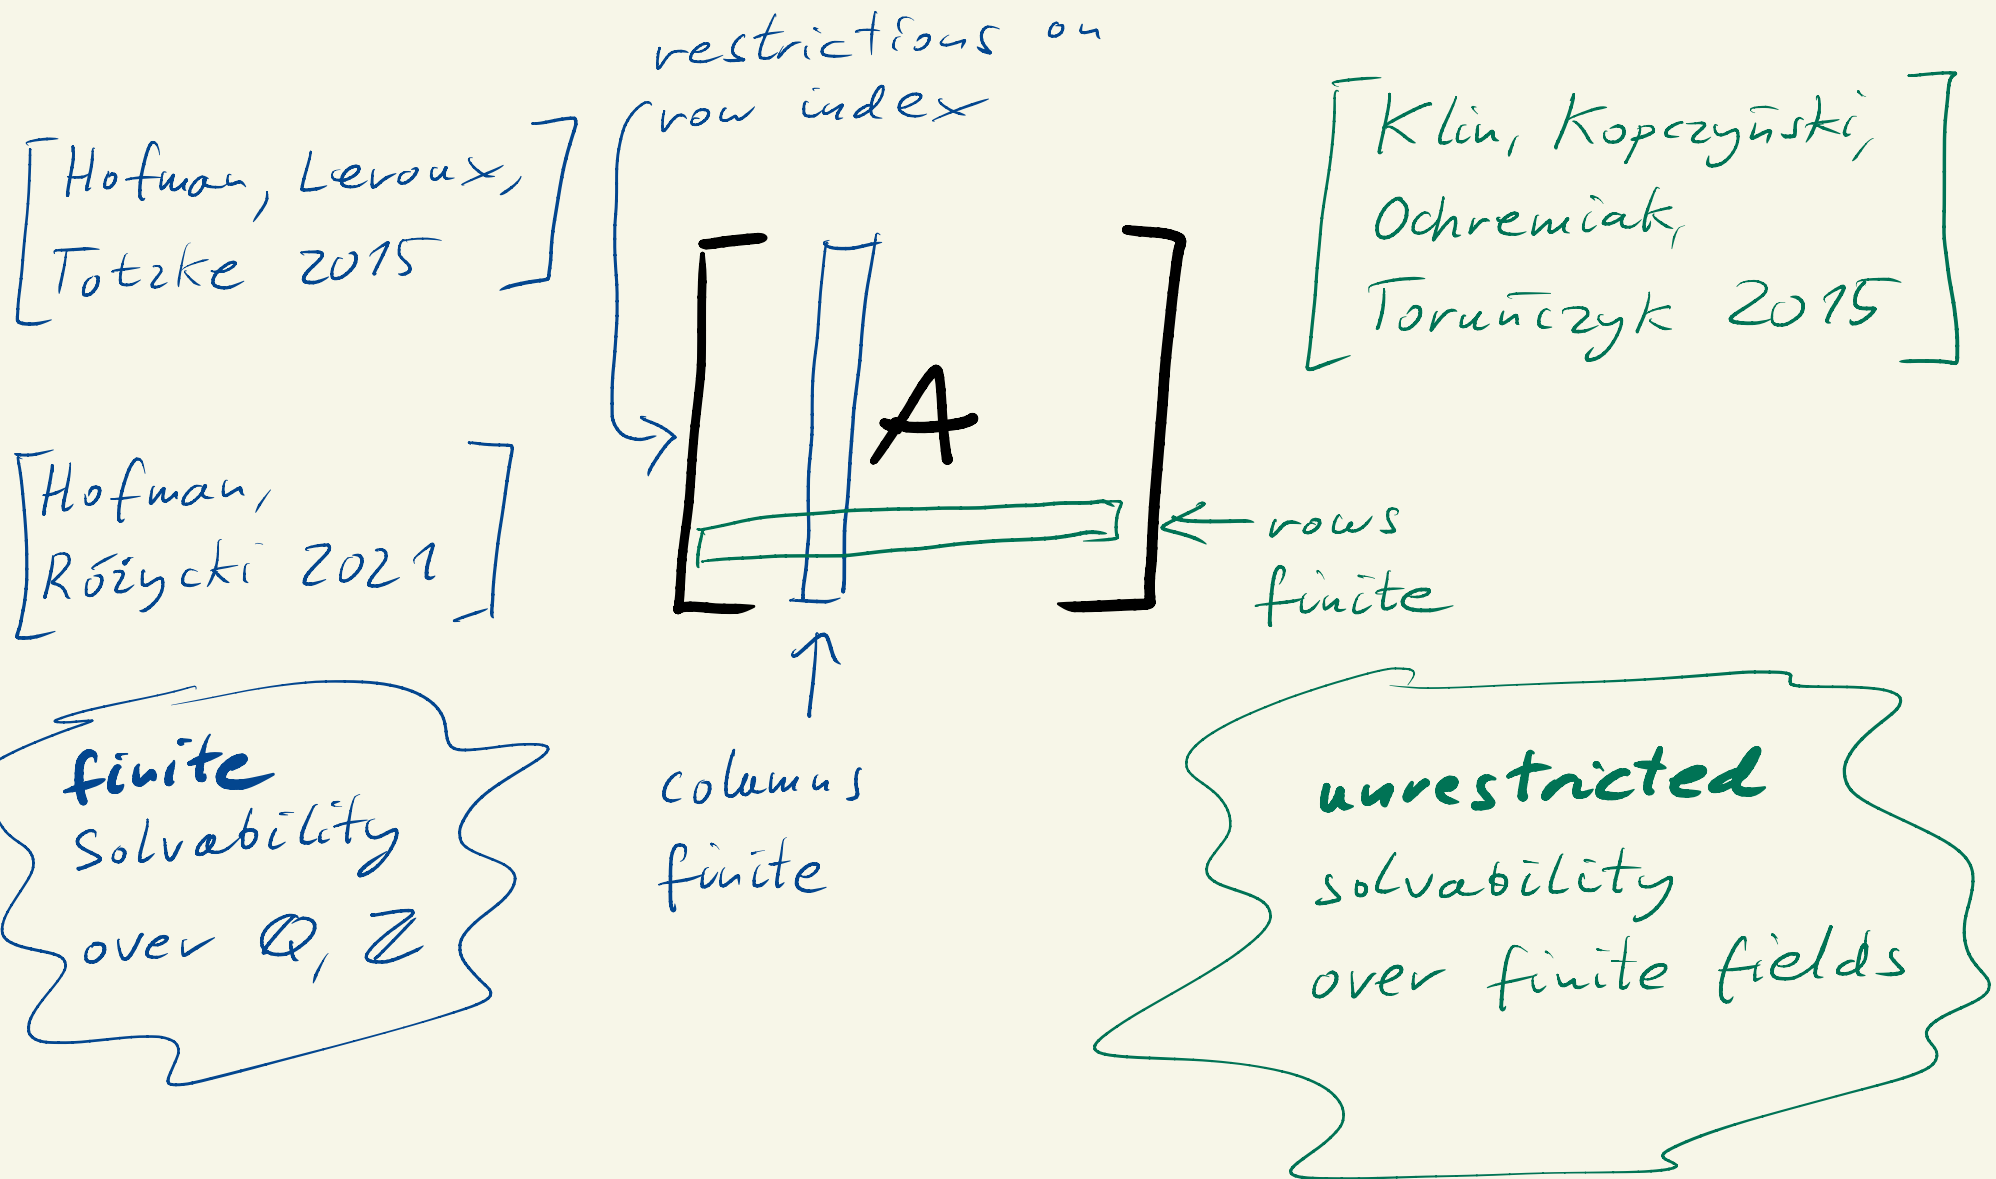 restrictions on
row index
[Hofman, Leroux,
Totzke 2015]
[Klin, Kopczyński,
Ochremiak,
Toruńczyk 2015]
A
[Hofman,
Różycki 2021]
rows
finite
finite
solvability
over ℚ, ℤ
columns
finite
unrestricted
solvability
over finite fields